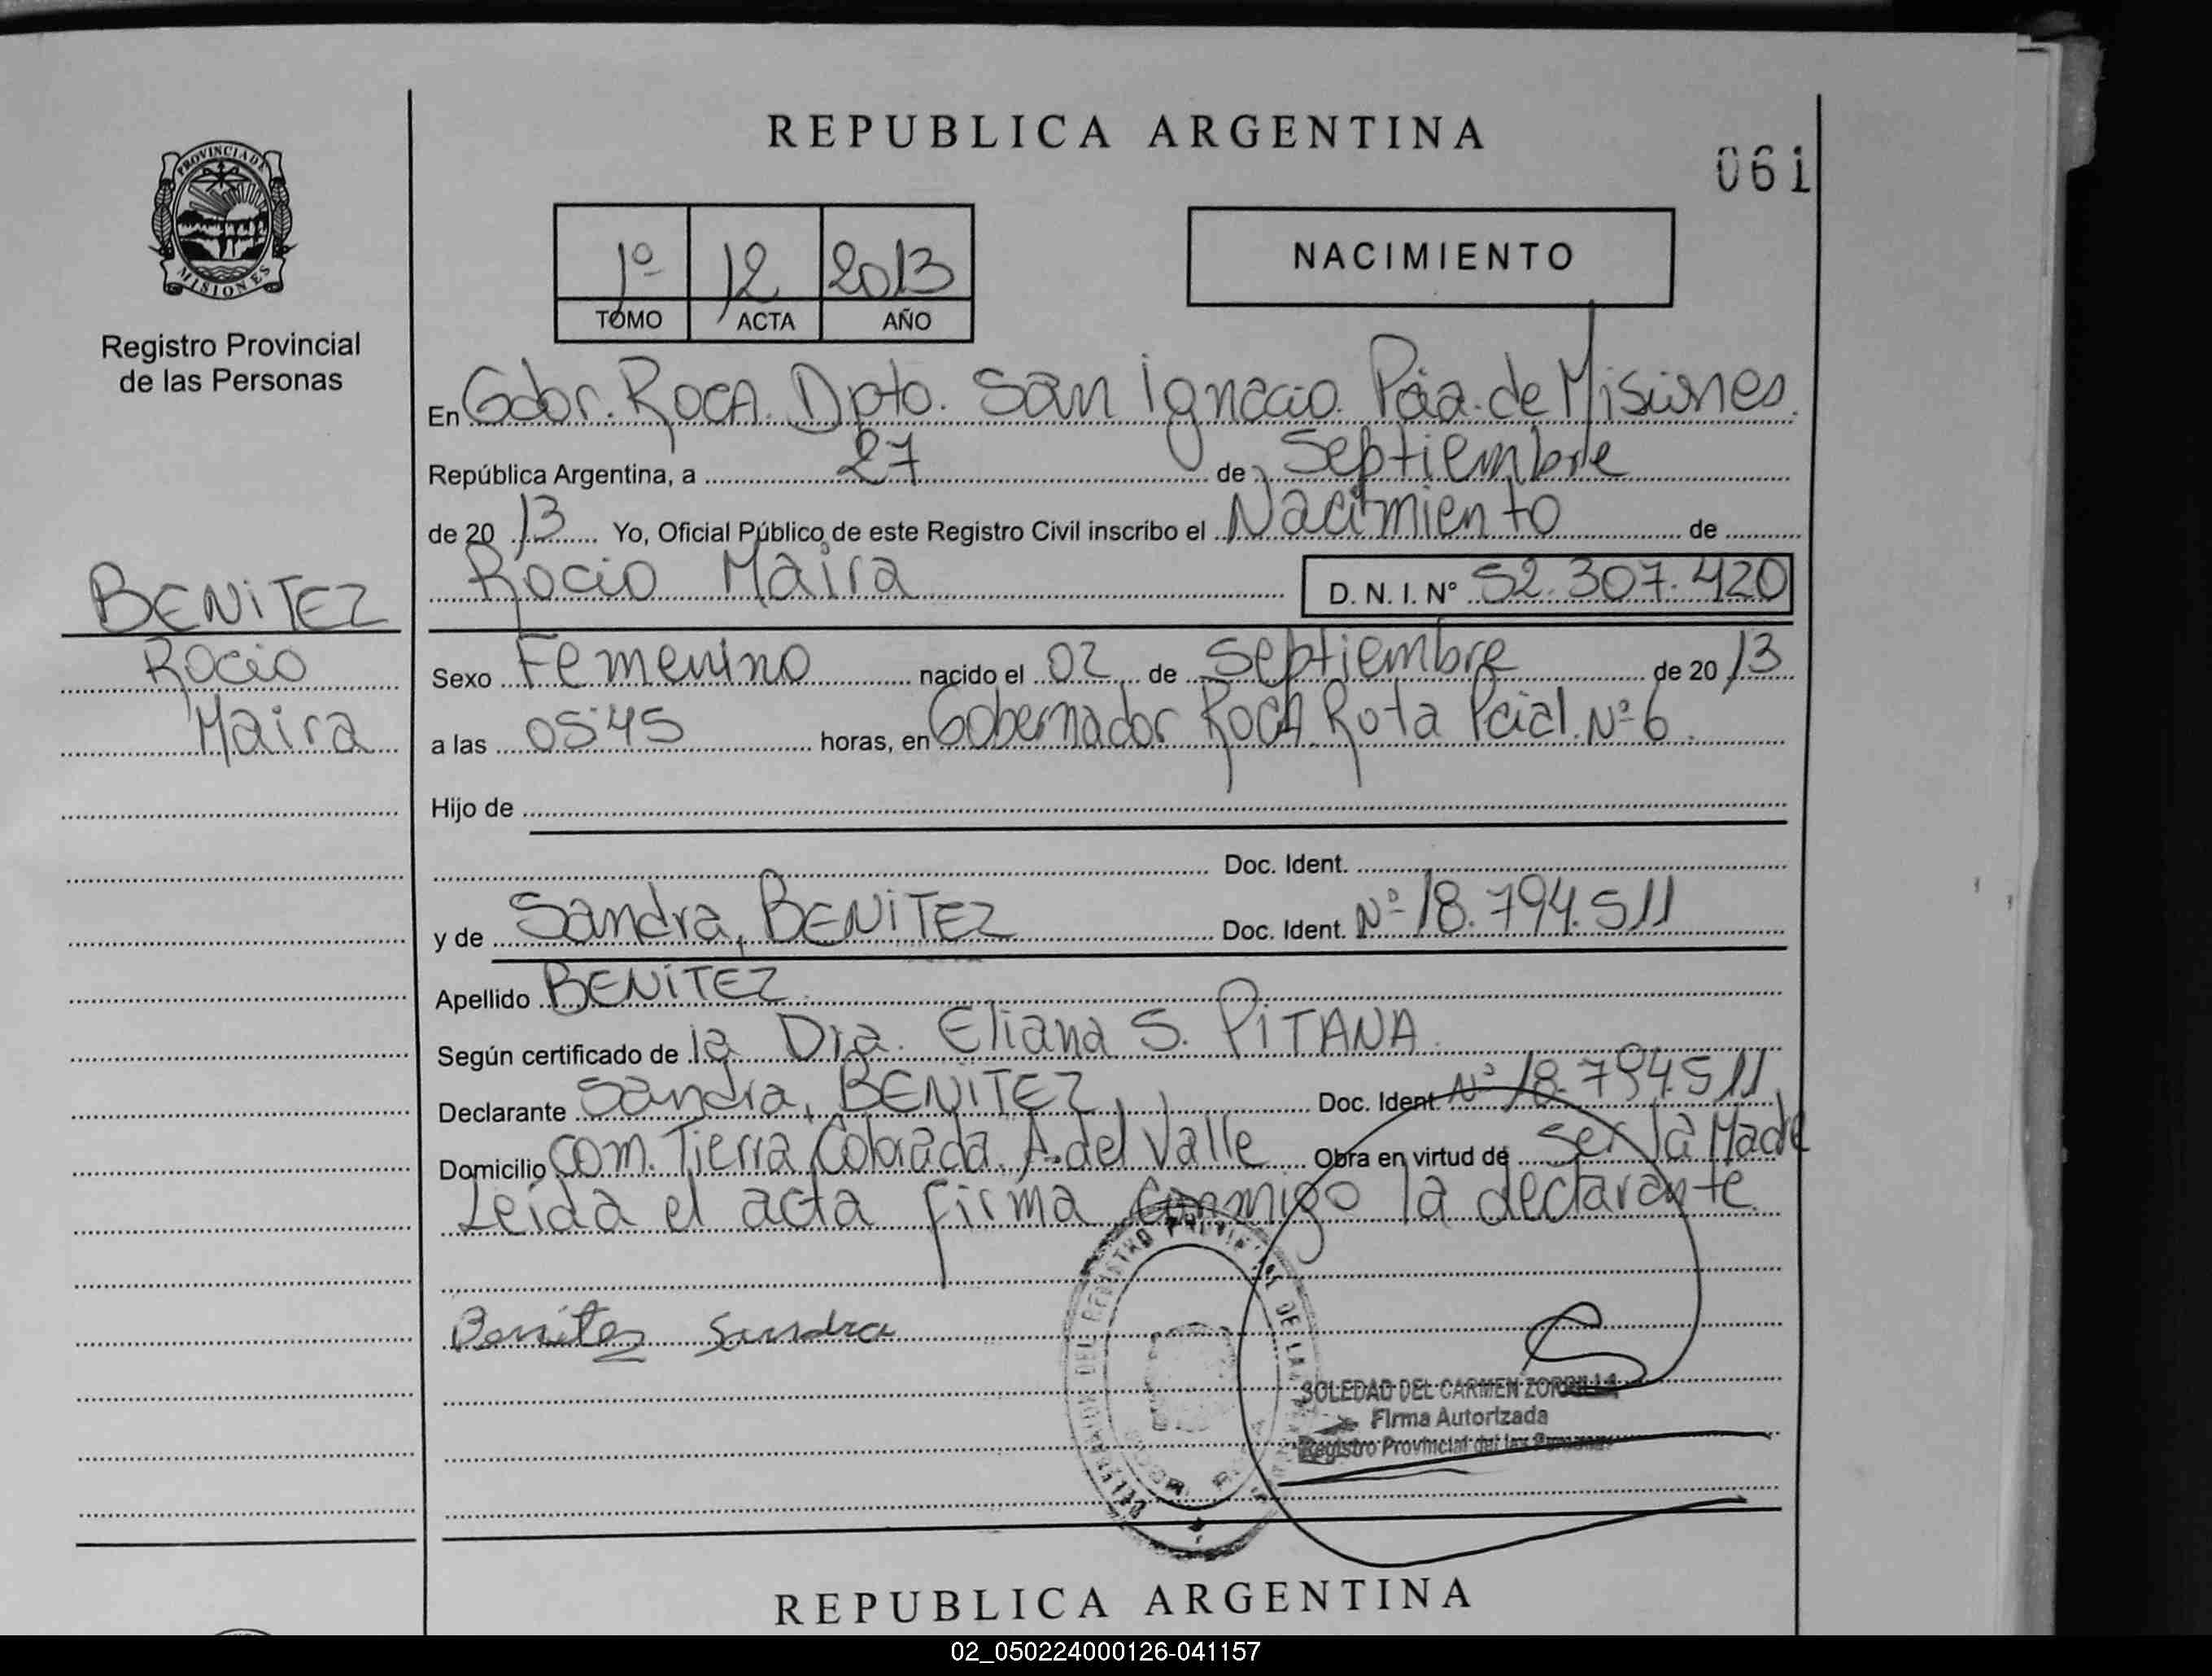 REPUBLICA ARGENTINA
061
PROVINCIA DE
MISIONES
Registro Provincial
de las Personas
1º 12 2013
TOMO ACTA AÑO
NACIMIENTO
En Gdor. ROCA. Dpto. San Ignacio. Pcia. de Misiones.
República Argentina, a 27 de Septiembre
de 20 13 Yo, Oficial Público de este Registro Civil inscribo el Nacimiento de
Rocio Maira D. N. I. Nº 52.307.420
BENITEZ
Rocio
Maira
Sexo Femenino nacido el 02 de Septiembre de 20 13
a las 05:45 horas, en Gobernador ROCA Ruta Pcial. Nº 6.
Hijo de
Doc. Ident.
y de Sandra, BENITEZ Doc. Ident. Nº 18.794.511
Apellido BENITEZ
Según certificado de la Dra. Eliana S. PITANA.
Declarante Sandra, BENITEZ Doc. Ident. Nº 18.794.511
Domicilio Com. Tierra Colorada. A. del Valle Obra en virtud de ser la Madre
Leida el acta firma conmigo la declarante
Benites Sandra
SOLEDAD DEL CARMEN ZORRILLA
Firma Autorizada
Registro Provincial de las Personas
REPUBLICA ARGENTINA
02_050224000126-041157